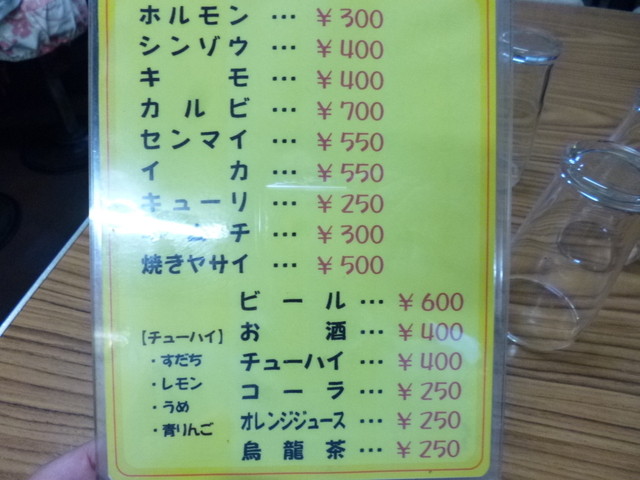 ホルモン … ￥300
シンゾウ … ￥400
キモ … ￥400
カルビ … ￥700
センマイ … ￥550
イカ … ￥550
キューリ … ￥250
チ … ￥300
焼きヤサイ … ￥500
ビール … ￥600
お酒 … ￥400
チューハイ … ￥400
コーラ … ￥250
オレンジジュース … ￥250
烏龍茶 … ￥250
【チューハイ】
・すだち
・レモン
・うめ
・青りんご